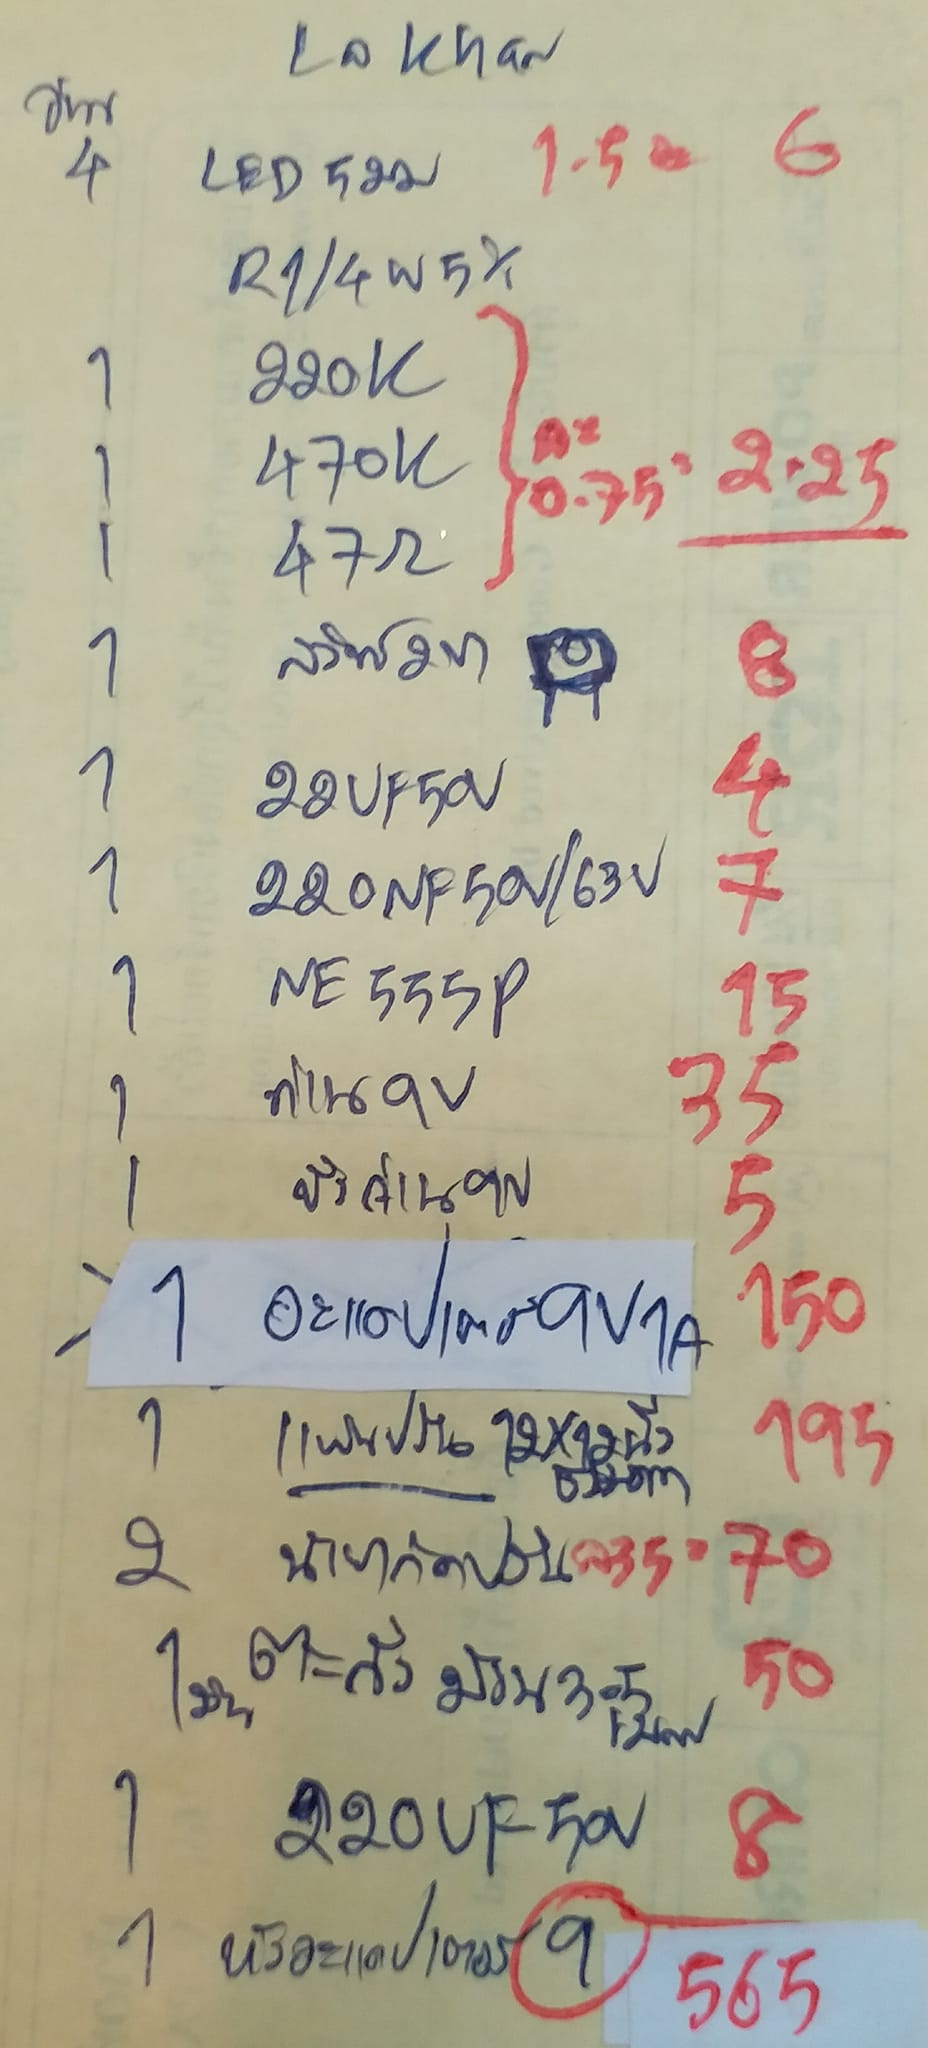 4 LED 5มม 1.5= 6
R1/4W5%
1 220K
1 470K
1 47Ω
ละ 0.75= 2.25
1 สวิทช์2ขา 8
1 22UF50V 4
1 220NF50V/63V 7
1 NE555P 15
1 ถ่าน9V 35
1 ขั้วถ่าน9V 5
1 อะแดปเตอร์9V1A 150
1 แผ่นปริ้น 12X12นิ้ว 195
ธรรมดา
2 น้ำยากัดปริ้น ละ35= 70
1ม้วน ตะกั่วม้วน3.5 50
เมตร
1 220UF50V 8
1 หัวอะแดปเตอร์ 9
565